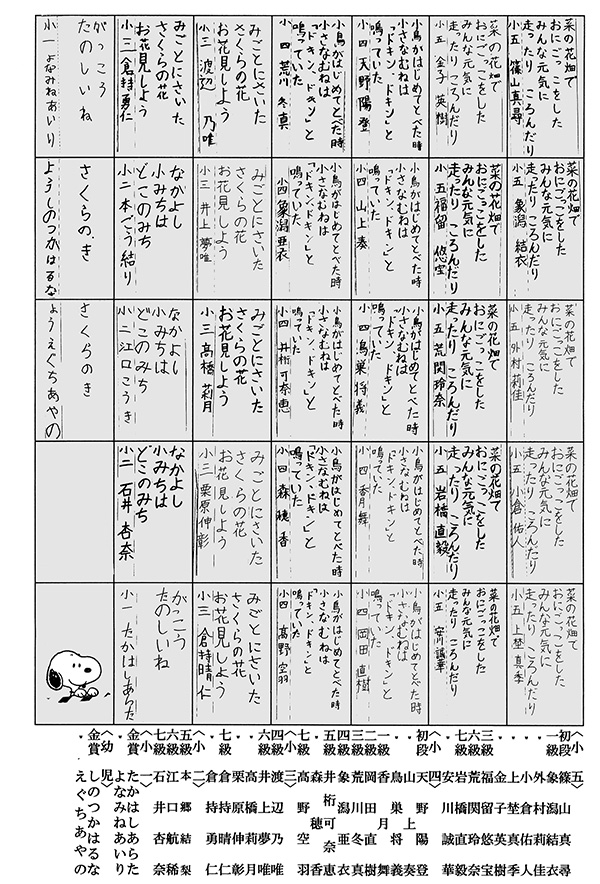 菜の花畑で
おにごっこをした
みんな元気に
走ったり ころんだり
小五 篠山真尋
菜の花畑で
おにごっこをした
みんな元気に
走ったり ころんだり
小五 象潟 結衣
菜の花畑で
おにごっこをした
みんな元気に
走ったり ころんだり
小五 外村 莉佳
菜の花畑で
おにごっこをした
みんな元気に
走ったり ころんだり
小五 小倉 佑人
菜の花畑で
おにごっこをした
みんな元気に
走ったり ころんだり
小五 上埜 真季
菜の花畑で
おにごっこをした
みんな元気に
走ったり ころんだり
小五 金子 英樹
菜の花畑で
おにごっこをした
みんな元気に
走ったり ころんだり
小五 福留 悠宝
菜の花畑で
おにごっこをした
みんな元気に
走ったり ころんだり
小五 荒関玲奈
菜の花畑で
おにごっこをした
みんな元気に
走ったり ころんだり
小五 岩橋 直毅
菜の花畑で
おにごっこをした
みんな元気に
走ったり ころんだり
小五 安川 誠華
小鳥がはじめてとべた時
小さなむねは
「ドキン、ドキン」と
鳴っていた
小四 天野 陽登
小鳥がはじめてとべた時
小さなむねは
「ドキン、ドキン」と
鳴っていた
小四 山上 奏
小鳥がはじめてとべた時
小さなむねは
「ドキン、ドキン」と
鳴っていた
小四 鳥巣将義
小鳥がはじめてとべた時
小さなむねは
「ドキン、ドキン」と
鳴っていた
小四 香月舞
小鳥がはじめてとべた時
小さなむねは
「ドキン、ドキン」と
鳴っていた
小四 岡田 直樹
小鳥がはじめてとべた時
小さなむねは
「ドキン、ドキン」と
鳴っていた
小四 荒川 冬真
小鳥がはじめてとべた時
小さなむねは
「ドキン、ドキン」と
鳴っていた
小四 象潟亜衣
小鳥がはじめてとべた時
小さなむねは
「ドキン、ドキン」と
鳴っていた
小四 井桁 可奈恵
小鳥がはじめてとべた時
小さなむねは
「ドキン、ドキン」と
鳴っていた
小四 森 穂香
小鳥がはじめてとべた時
小さなむねは
「ドキン、ドキン」と
鳴っていた
小四 高野 空羽
みごとにさいた
さくらの花
お花見しよう
小三 渡辺 乃唯
みごとにさいた
さくらの花
お花見しよう
小三 井上 夢唯
みごとにさいた
さくらの花
お花見しよう
小三 高橋 莉月
みごとにさいた
さくらの花
お花見しよう
小三 栗原伸彰
みごとにさいた
さくらの花
お花見しよう
小三 倉持晴仁
みごとにさいた
さくらの花
お花見しよう
小三 倉持勇仁
なかよし
小みちは
どこのみち
小二 本ごう結り
なかよし
小みちは
どこのみち
小二 江口こうき
なかよし
小みちは
どこのみち
小二 石井 杏奈
がっこう
たのしいね
小一 たかはしあらた
がっこう
たのしいね
小一 よなみねあいり
さくらのき
ようしのつかはるな
さくらのき
ようえぐちあやの
〈小五〉
初段 篠山真尋
一級 象潟結衣
・ 外村莉佳
・ 小倉佑人
・ 上埜真季
・ 金子英樹
三級 福留悠宝
六級 荒関玲奈
七級 岩橋直毅
・ 安川誠華
〈小四〉
初段 天野陽登
・ 山上奏
・ 鳥巣将義
一級 香月舞
二級 岡田直樹
荒川冬真
象潟亜衣
五級 井桁可奈恵
森穂香
高野空羽
〈小三〉
四級 渡辺乃唯
六級 井上夢唯
・ 高橋莉月
・ 栗原伸彰
七級 倉持晴仁
・ 倉持勇仁
〈小二〉
五級 本郷結梨
六級 江口航稀
七級 石井杏奈
〈小一〉
たかはしあらた
よなみねあいり
〈幼児〉
金賞 しのつかはるな
・ えぐちあやの